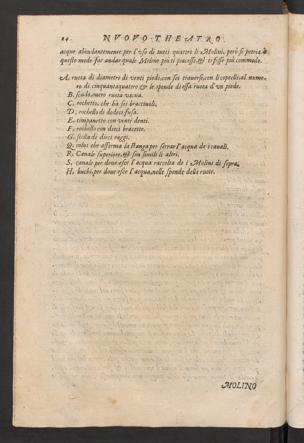 24. NVOVO THEATRO.
acque abondantemente per l'uso di tutti quattro li Molini, però si potria à
questo modo far andar quale Molino più ti piacesse, & ti fosse più commodo.
A, ruota di diametro di venti piedi, con sei trauersi, con li copelli, al nume-
ro di cinquantaquattro & le sponde di essa ruota d'un piede.
B. scudo, ouero ruota
C, rochetto, che hà sei bracciuoli.
D, rochello di dodeci fusa.
E, timpanetto con venti denti.
F, rochello con dieci bracette.
G, stella di dieci raggi.
Q, colui che afferma la stanga per serrar l'acqua de i canali.
R, Canale superiore, & son simili li altri.
S, canale per doue esce l'acqua raccolta de i Molini di sopra,
H, buchi, per doue esce l'acqua, nelle sponde delle ruote.
MOLINO